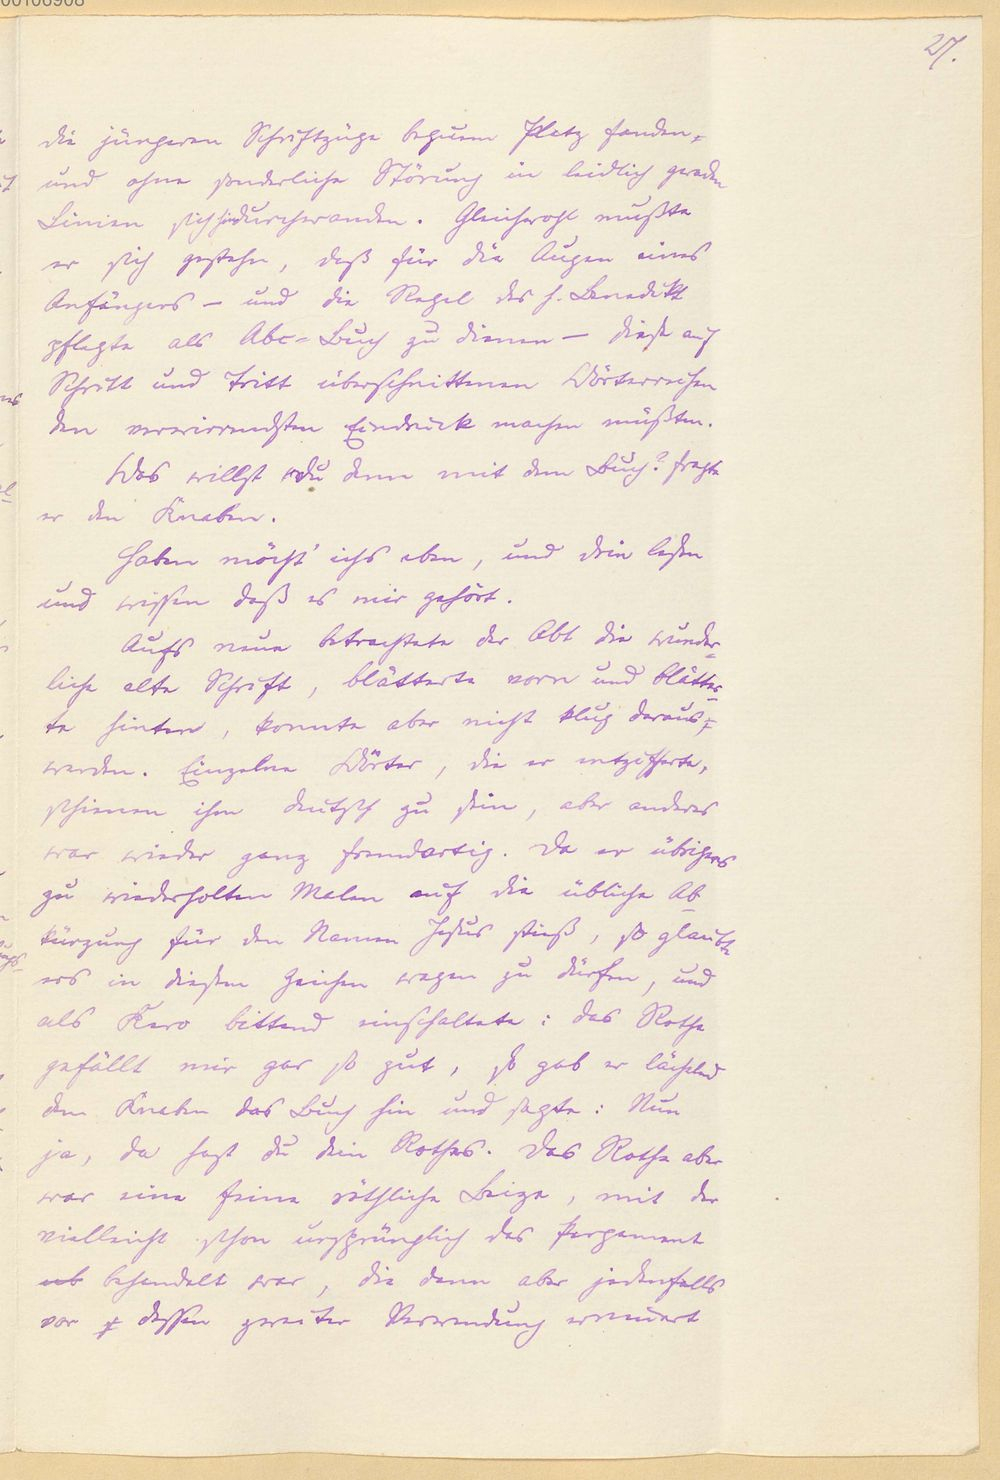 00106908
27.
die jüngeren Schriftzüge bequem Platz fanden,
und ohne sonderliche Störung in leidlich geraden
Linien sich hindurchwanden. Gleichwohl mußte
er sich gestehn, daß für die Augen eines
Anfängers – und die Regel des h. Benedikt
pflegte als Abc-Buch zu dienen – diese auf
Schritt und Tritt überschnittenen Wörterreihen
den verwirrendsten Eindruck machen müßten.
Was willst du denn mit dem Buch? fragte
er den Knaben.
Haben möcht' ichs eben, und drin lesen
und wissen daß es mir gehört.
Aufs neue betrachtete der Abt die wunder-
liche alte Schrift, blätterte vorn und blätter-
te hinten, konnte aber nicht klug daraus
werden. Einzelne Wörter, die er entzifferte,
schienen ihm deutsch zu sein, aber anderes
war wieder ganz fremdartig. Da er übrigens
zu wiederholten Malen auf die übliche Ab-
kürzung für den Namen Jesus stieß, so glaubte
ers in diesem Zeichen wagen zu dürfen, und
als Kero bittend einschaltete: das Rothe
gefällt mir gar so gut, so gab er lächelnd
dem Knaben das Buch hin und sagte: Nun
ja, da hast du dein Rothes. Das Rothe aber
war eine feine röthliche Beize, mit der
vielleicht schon ursprünglich das Pergament
behandelt war, die dann aber jedenfalls
vor dessen zweiter Verwendung erneuert